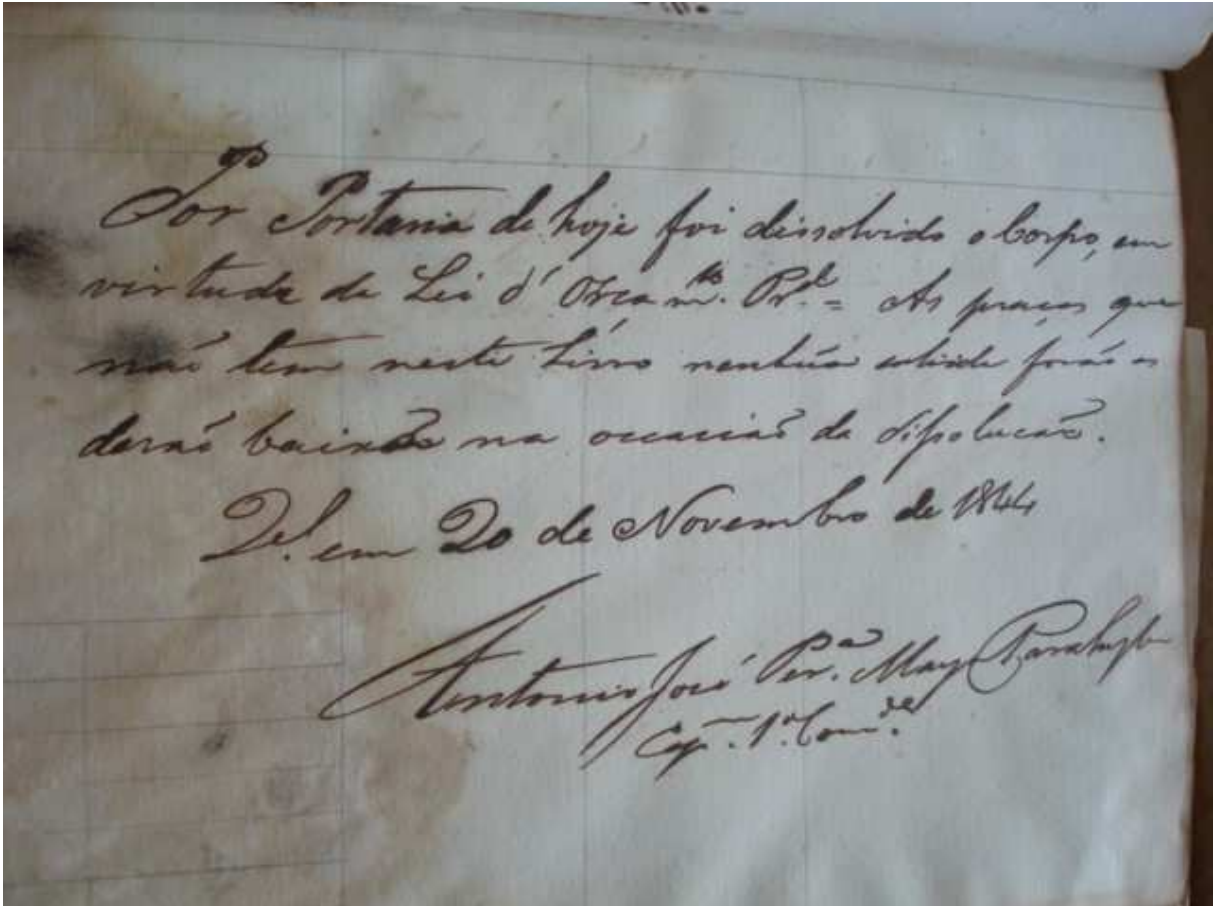 Por Portaria de hoje foi dissolvido o Corpo, em
virtude da Lei d'Orçam.to Pr.al = As praças que
não tem neste Livro nenhũa forão as
derão baixas na occasião da dissolucão.
Q.el em 20 de Novembro de 1844
Antonio José Per.a May Parahyba
Cap.m 1.o Com.de